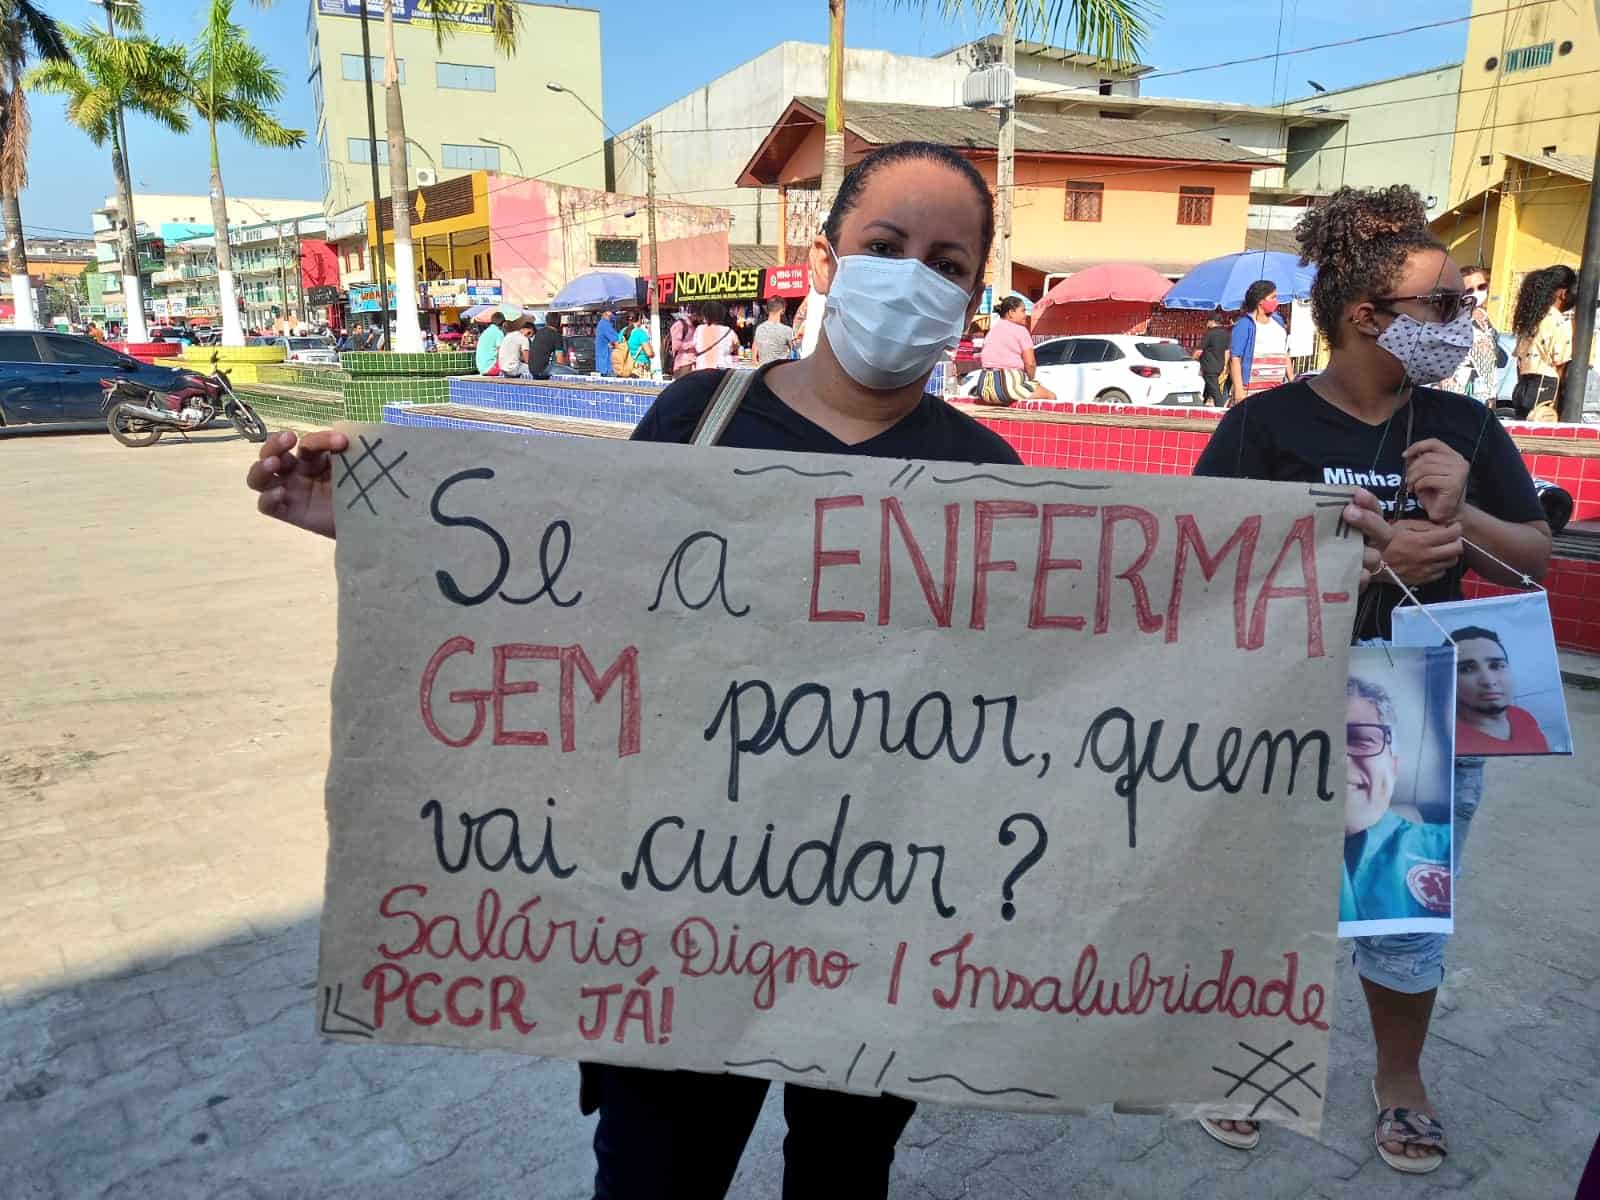 UNIP
UNIVERSIDADE PAULISTA
JP NOVIDADES
Se a ENFERMA-
GEM parar, quem
vai cuidar?
Salário Digno / Insalubridade
PCCR JÁ!
Minha